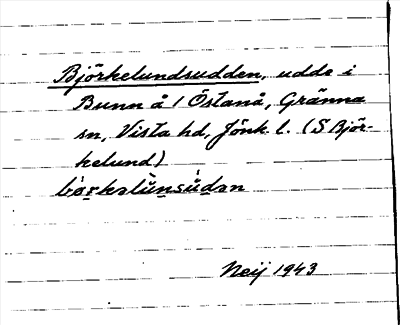 Björkelundsudden, udde i
Bunn å / Östanå, Gränna
sn, Vista hd, Jönk. l. (S Björ-
kelund)
Neij 1943